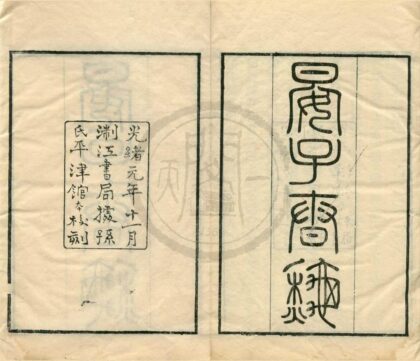 晏子春秌
光緒元年十一月
淛江書局據孫
氏平津館本校刻